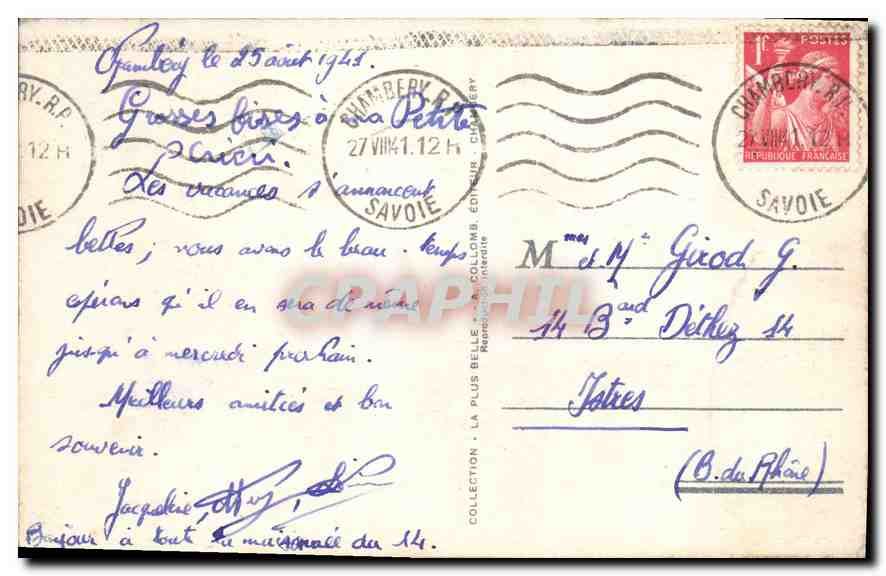 Chambéry le 25 août 1941.
Grosses bises à la Petite
Les vacances s'annoncent
belles; nous avons le beau temps
espérons qu'il en sera de même
jusqu'à mercredi prochain.
Meilleurs amitiés et bon
souvenir.
Jacqueline,
Bonjour à toute la maisonnée du 14.
CHAMBERY. R.P.
27 VIII 41. 12 H
SAVOIE
COLLECTION - LA PLUS BELLE - A. COLLOMB, ÉDITEUR, CHAMBÉRY
Reproduction interdite
1F POSTES
REPUBLIQUE FRANÇAISE
CHAMBERY. R.P.
27 VIII 41. 12 H
SAVOIE
Mmes & Mr Girod G.
14 Bard Déthez 14
Istres
(B. du Rhône)
RY. R.P.
12 H
OIE
CPAPHIL